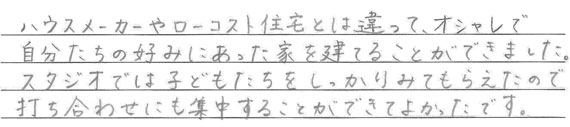 ハウスメーカーやローコスト住宅とは違って、オシャレで
自分たちの好みにあった家を建てることができました。
スタジオでは子どもたちをしっかりみてもらえたので
打ち合わせにも集中することができてよかったです。